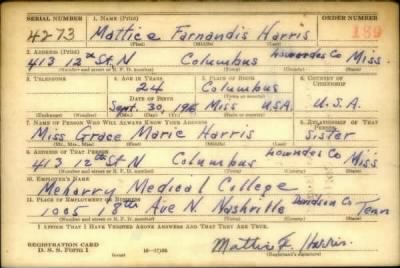 SERIAL NUMBER 1. NAME (Print) ORDER NUMBER
4273 Mattice Farnandis Harris 189
(First) (Middle) (Last)
2. ADDRESS (Print)
413 12th St. N Columbus Lowndes Co Miss.
(Number and street or R. F. D. number) (Town) (County) (State)
3. TELEPHONE 4. AGE IN YEARS 5. PLACE OF BIRTH 6. COUNTRY OF CITIZENSHIP
24 Columbus
DATE OF BIRTH
Sept. 30, Miss U.S.A. U.S.A.
7. NAME OF PERSON WHO WILL ALWAYS KNOW YOUR ADDRESS 8. RELATIONSHIP OF THAT PERSON
Miss Grace Marie Harris Sister
(Mr., Mrs., Miss) (First) (Middle) (Last)
9. ADDRESS OF THAT PERSON
413 12th St N Columbus Lowndes Co Miss
(Number and street or R. F. D. number) (Town) (County) (State)
10. EMPLOYER'S NAME
Meharry Medical College
11. PLACE OF EMPLOYMENT OR BUSINESS
1005 18th Ave N. Nashville Davidson Co Tenn
(Number and street or R. F. D. number) (Town) (County) (State)
I AFFIRM THAT I HAVE VERIFIED ABOVE ANSWERS AND THAT THEY ARE TRUE.
REGISTRATION CARD
D. S. S. Form 1 Mattice F. Harris
(Registrant's signature)